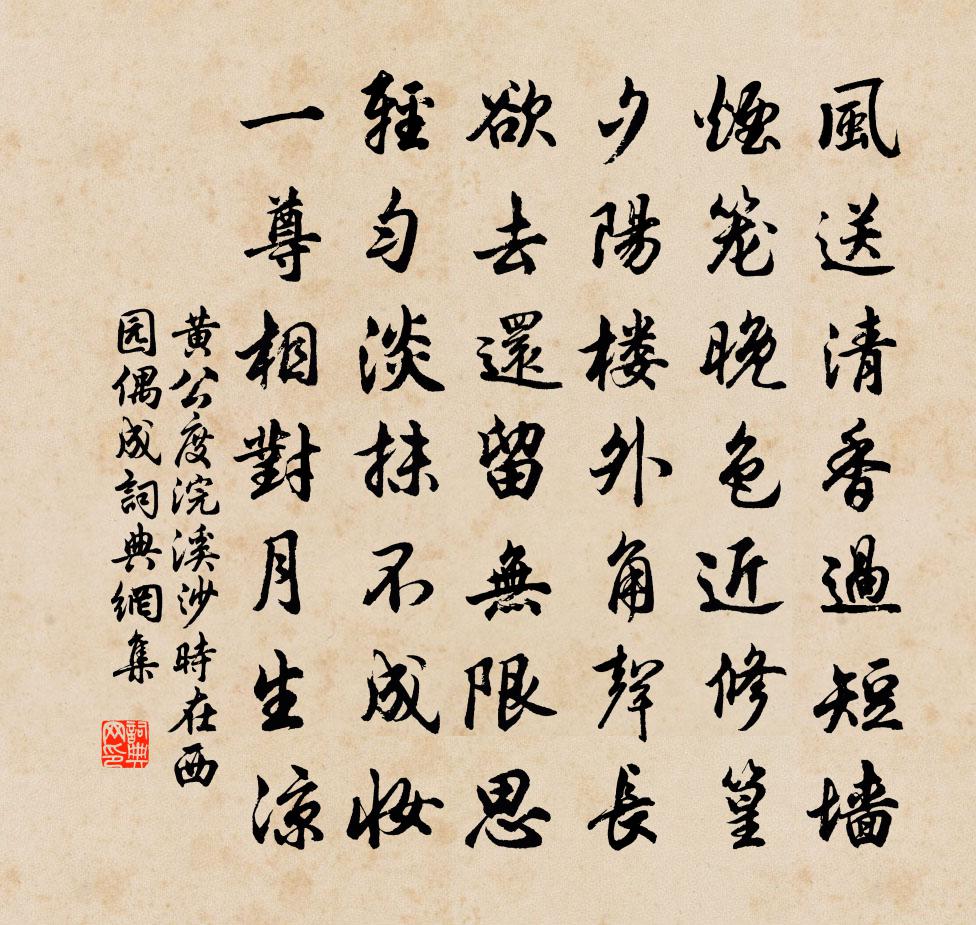 風送清香過短墙
煙笼晚色近修篁
夕陽楼外角聲長
欲去還留無限思
輕匀淡抹不成妆
一尊相對月生涼
黄公度浣溪沙時在西
园偶成詞典網集
詞典
网印